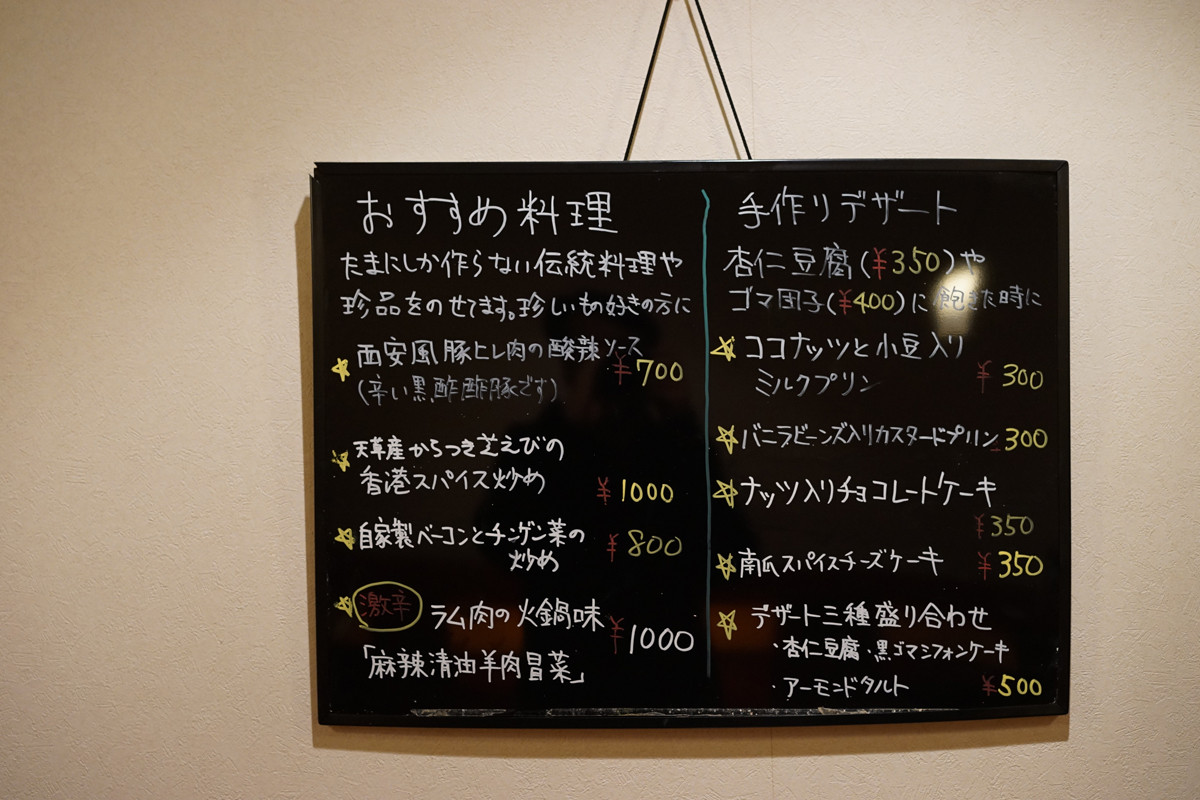 おすすめ料理
たまにしか作らない伝統料理や
珍品をのせてます。珍しいもの好きの方に
☆西安風豚ヒレ肉の酸辣ソース
¥700
(辛い黒酢酢豚です)
☆天草産からつき芝えびの
香港スパイス炒め
¥1000
☆自家製ベーコンとチンゲン菜の
炒め
¥800
☆激辛 ラム肉の火鍋味
¥1000
「麻辣清油羊肉冒菜」
手作りデザート
杏仁豆腐(¥350)や
ゴマ団子(¥400)に飽きた時に
☆ココナッツと小豆入り
ミルクプリン
¥300
☆バニラビーンズ入りカスタードプリン 300
☆ナッツ入りチョコレートケーキ
¥350
☆南瓜スパイスチーズケーキ ¥350
☆デザート三種盛り合わせ
・杏仁豆腐・黒ゴマシフォンケーキ
・アーモンドタルト ¥500